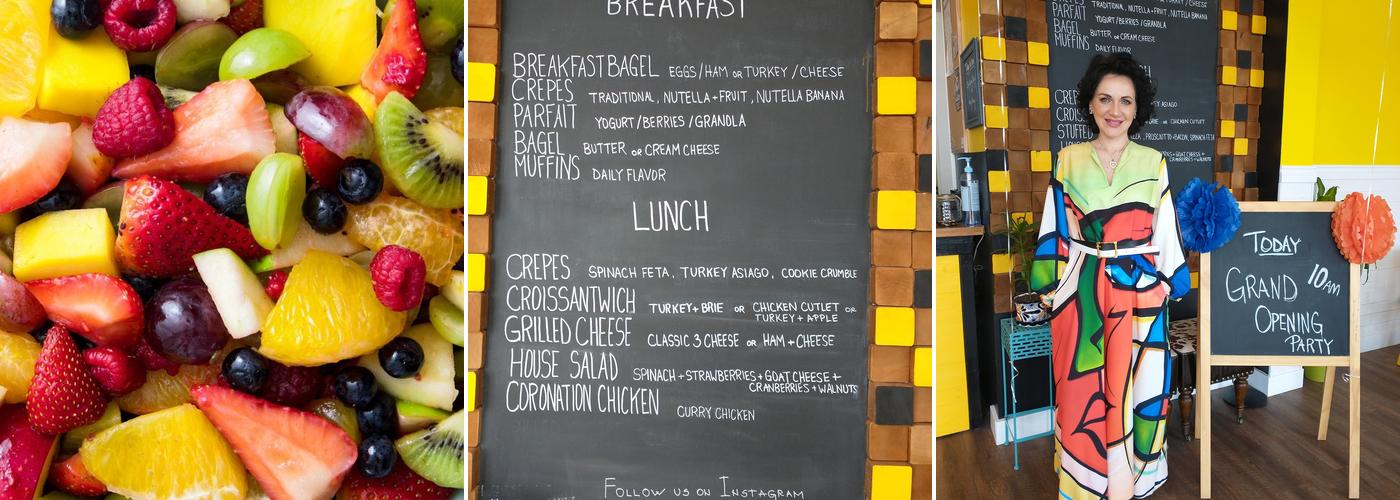 BREAKFAST
BREAKFAST BAGEL EGGS/HAM OR TURKEY/CHEESE
CREPES TRADITIONAL, NUTELLA+FRUIT, NUTELLA BANANA
PARFAIT YOGURT/BERRIES/GRANOLA
BAGEL BUTTER OR CREAM CHEESE
MUFFINS DAILY FLAVOR
LUNCH
CREPES SPINACH FETA, TURKEY ASIAGO, COOKIE CRUMBLE
CROISSANTWICH TURKEY+BRIE OR CHICKEN CUTLET OR
TURKEY+APPLE
GRILLED CHEESE CLASSIC 3 CHEESE OR HAM+CHEESE
HOUSE SALAD SPINACH+STRAWBERRIES+GOAT CHEESE+
CRANBERRIES+WALNUTS
CORONATION CHICKEN CURRY CHICKEN
FOLLOW US ON INSTAGRAM
PARFAIT YOGURT/BERRIES/GRANOLA
BAGEL BUTTER OR CREAM CHEESE
MUFFINS DAILY FLAVOR
TODAY
10AM
GRAND
OPENING
PARTY